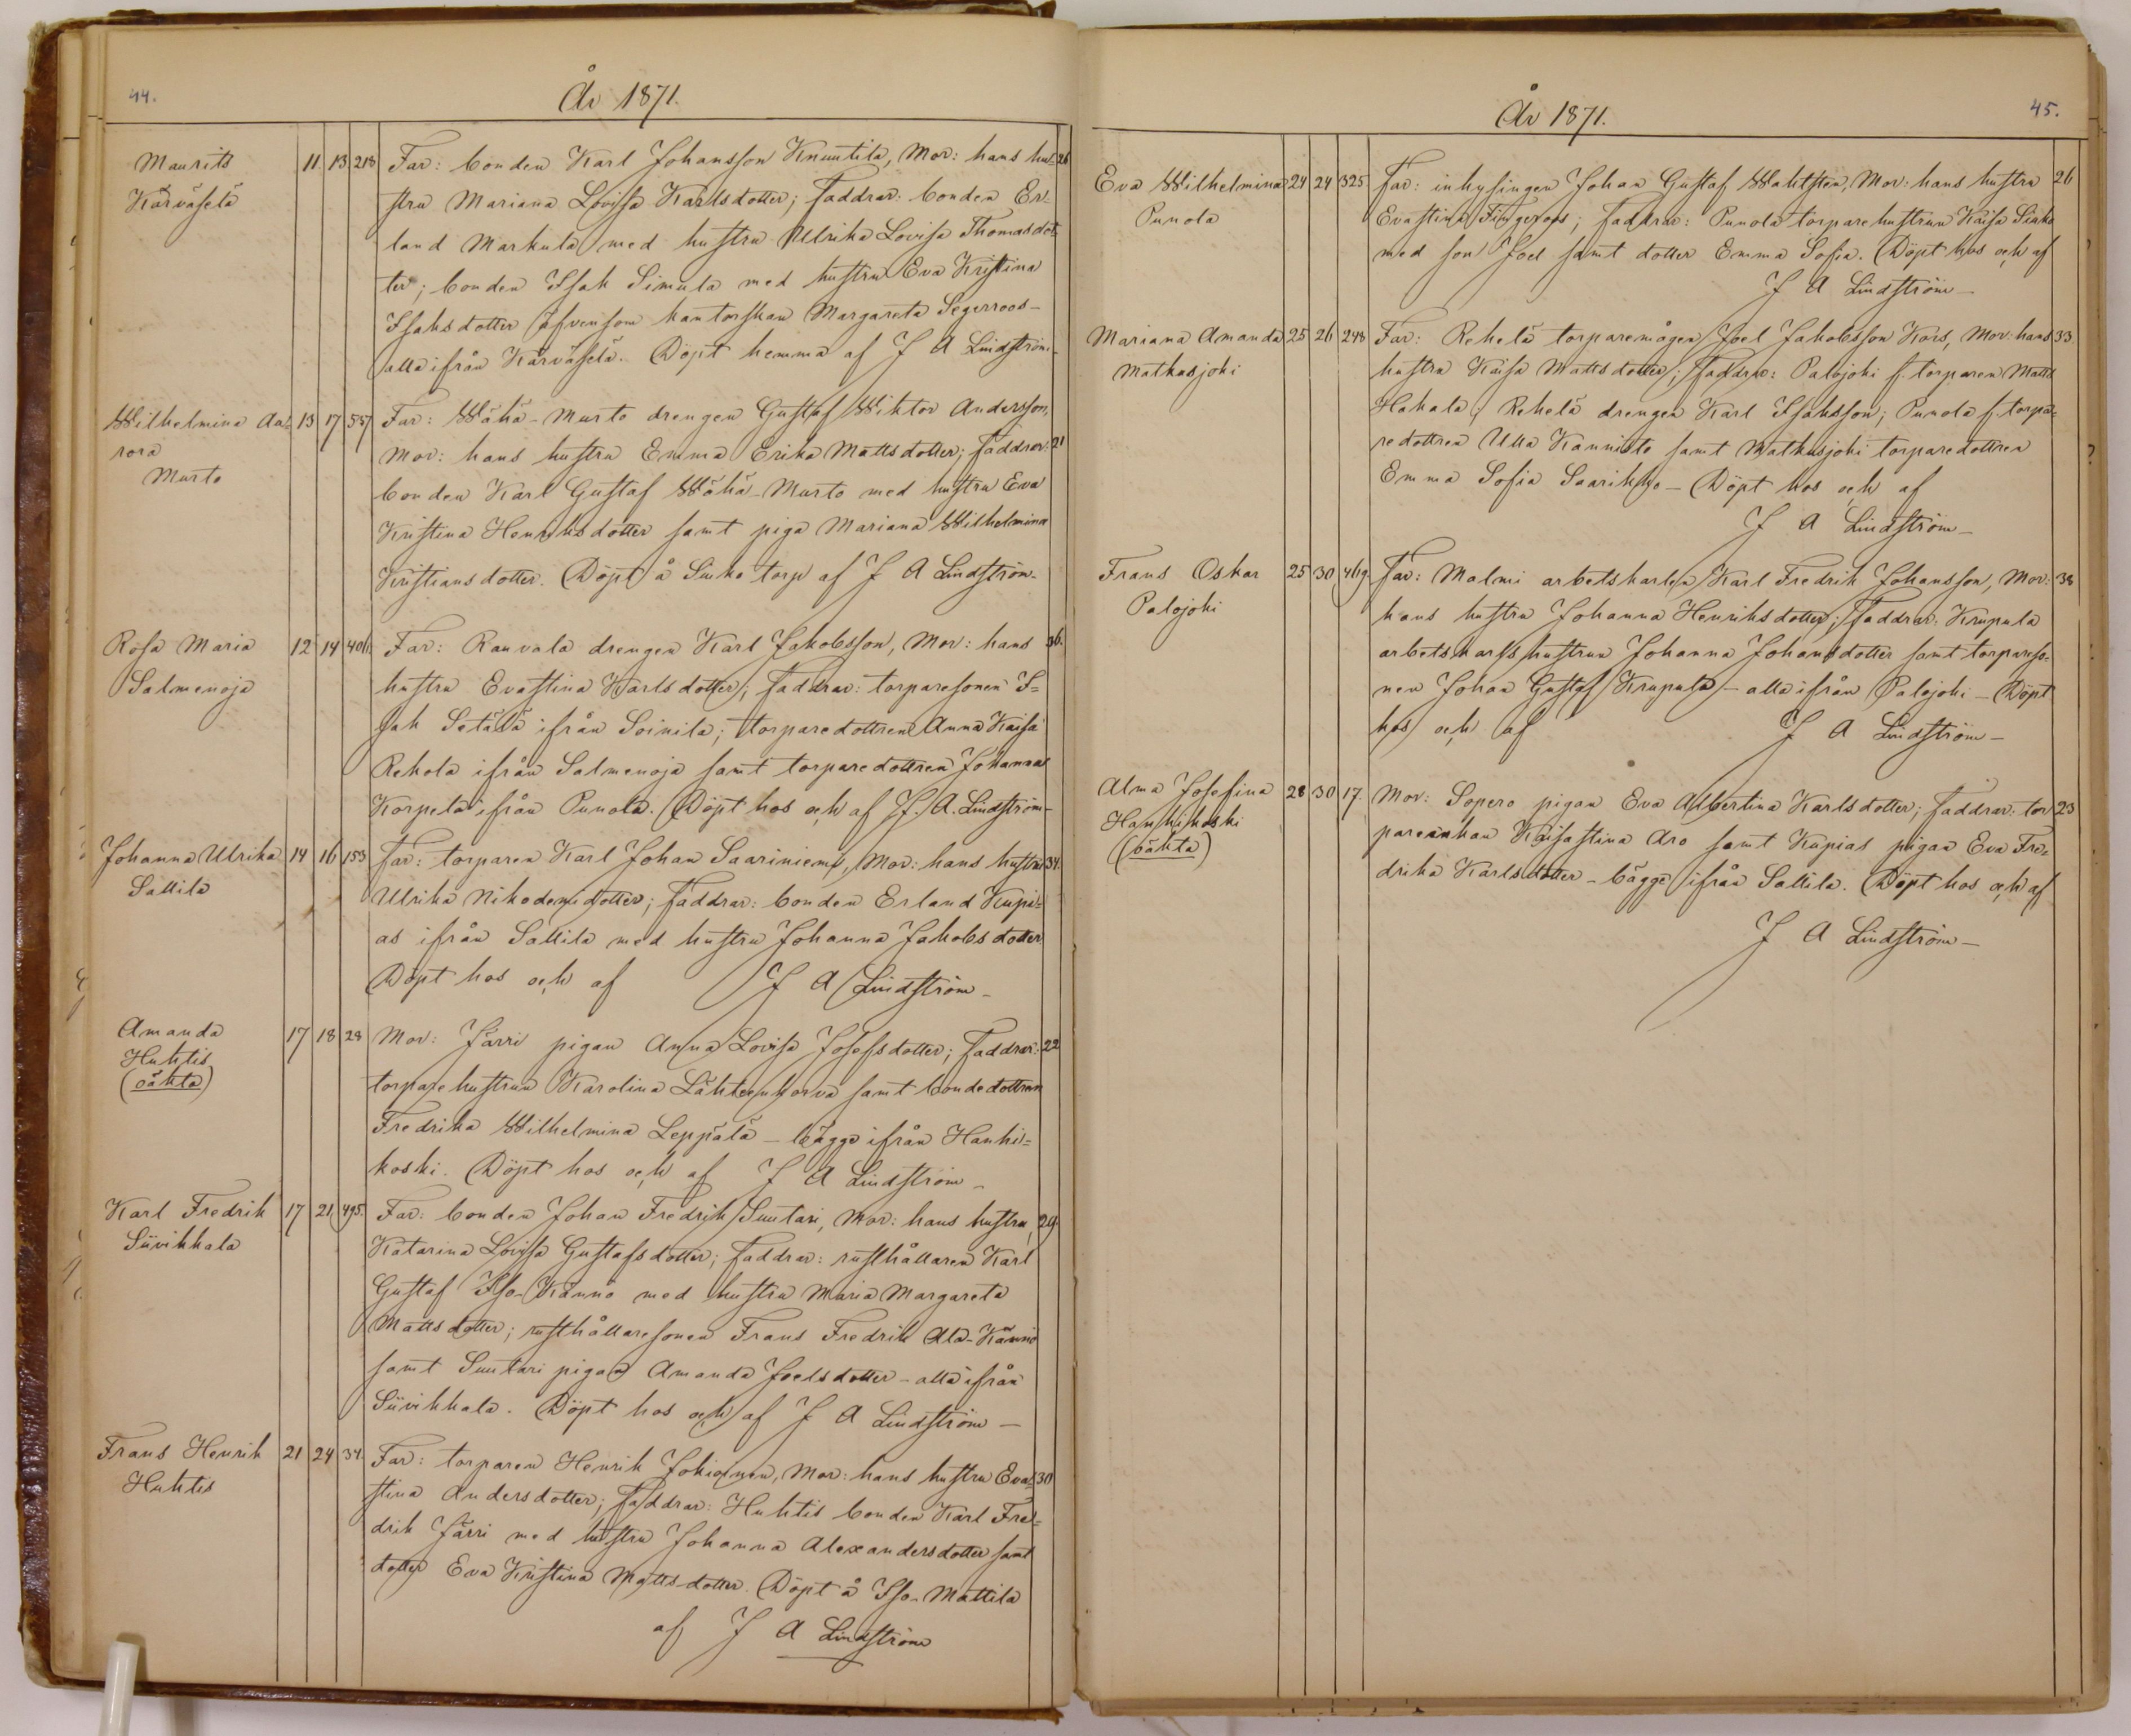 44.
År 1871.
Maurits 11. 13 218 Far: bonden Karl Johansson Knuutila, Mor: hans hu- 26
Kärväselä stru Mariana Lovisa Karlsdotter; faddrar: bonden Er-
land Markula med hustru Ulrika Lovisa Thomasdot-
ter; bonden Isak Simula med hustru Eva Kristina
Isaksdotter äfvensom kantorskan Margareta Segerroos-
alla ifrån Kärväselä. Döpt hemma af J A Lindström-
Wilhelmina Au- 13 17 557 Far: Wähä-Murto drengen Gustaf Wiktor Andersson,
rora Mor: hans hustru Emma Erika Mattsdotter; faddrar: 21
Murto bonden Karl Gustaf Wähä-Murto med hustru Eva
Kristina Henriksdotter samt piga Mariana Wilhelmina
Kristiansdotter. Döpt å Siuko torp af J A Lindström-
Rosa Maria 12 14 406. Far: Rauvala drengen Karl Jakobsson, Mor: hans 36.
Salmenoja hustru Evastina Karlsdotter; faddrar: torparesonen I=
sak Setälä ifrån Soinila; torparedottren Anna Kaisa
Rekola ifrån Salmenoja samt torparedottren Johanna
Korpela ifrån Punola. Döpt hos och af J. A. Lindström-
Johanna Ulrika 14 16 153 Far: torparen Karl Johan Saariniemi, Mor: hans hustru 34.
Sallila Ulrika Nikodemidotter; faddrar: bonden Erland Kupi=
as ifrån Sallila med hustru Johanna Jakobsdotter
Döpt hos och af J A Lindström-
Amanda 17 18 28 Mor: Järri pigan Anna Lovisa Josefsdotter; faddrar: 22
Huhtis torparehustrun Karolina Lähteenkorva samt bondedottren
(oäkta) Fredrika Wilhelmina Leppälä - bägge ifrån Hanhi=
koski. Döpt hos och af J A Lindström-
Karl Fredrik 17 21 495. Far: bonden Johan Fredrik Suutari, Mor: hans hustru, 29.
Siivikkala Katarina Lovisa Gustafsdotter; faddrar: rusthållaren Karl
Gustaf Iso-Kännö med hustru Maria Margareta
Mattsdotter; rusthållaresonen Frans Fredrik Ala-Kännö
samt Suutari pigan Amanda Joelsdotter - alla ifrån
Siivikkala. Döpt hos och af J A Lindström-
Frans Henrik 21 24 34. Far: torparen Henrik Jokioinen, Mor: hans hustru Eva= 30
Huhtis stina Andersdotter; faddrar: Huhtis bonden Karl Fre=
drik Järri med hustru Johanna Alexandersdotter samt
dotter Eva Kristina Mattsdotter. Döpt å Iso-Mattila
af J A Lindström
År 1871.
45.
Eva Wilhelmina 24 24 325 Far: inhysingen Johan Gustaf Wahlsten, Mor: hans hustru 26
Punola Evastina Fingerroos; faddrar: Punola torparehustrun Kaisa Siuko
med son Joel samt dotter Emma Sofia. Döpt hos och af
J A Lindström-
Mariana Amanda 25 26 248 Far: Rekelä torparemågen Joel Jakobsson Kors, Mor: hans 33
Matkusjoki hustru Kaisa Mattsdotter; faddrar: Palojoki f. torparen Matts
Hakala; Rekelä drengen Karl Isaksson; Punola f. torpa=
redottren Ulla Kannisto samt Matkusjoki torparedottren
Emma Sofia Saarikko - Döpt hos och af
J A Lindström-
Frans Oskar 25 30 469. Far: Malmi arbetskarlen Karl Fredrik Johansson, Mor: 38
Palojoki hans hustru Johanna Henriksdotter; faddrar: Krupula
arbetskarlshustrun Johanna Johansdotter samt torpareso=
nen Johan Gustaf Krupula - alla ifrån Palojoki - Döpt
hos och af J A Lindström-
Alma Josefina 28 30 17. Mor: Sopero pigan Eva Albertina Karlsdotter; faddrar: tor 23
Hanhikoski pareenkan Kaisastina Aro samt Kupias pigan Eva Fre=
(oäkta) drika Karlsdotter - bägge ifrån Sallila. Döpt hos och af
J A Lindström-